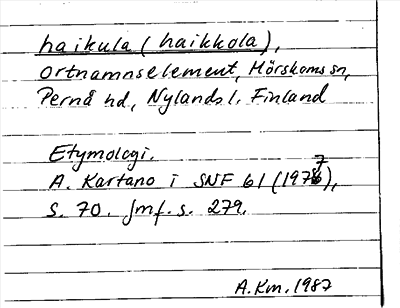 haikula (haikkola),
ortnamnselement, Mörskoms sn,
Pernå hd, Nylands l. Finland
Etymologi.
A. Kartano i SNF 61 (1977),
s. 70. Jmf. s. 279.
A.Km. 1987